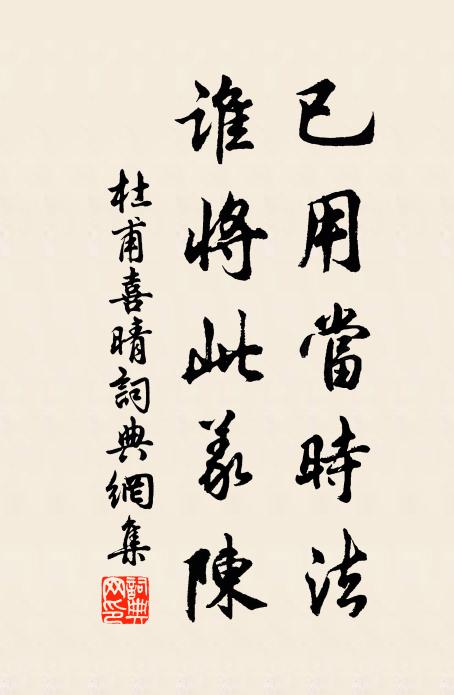 已用當時法
誰將此義陳
杜甫喜晴詞典網集
詞典網印